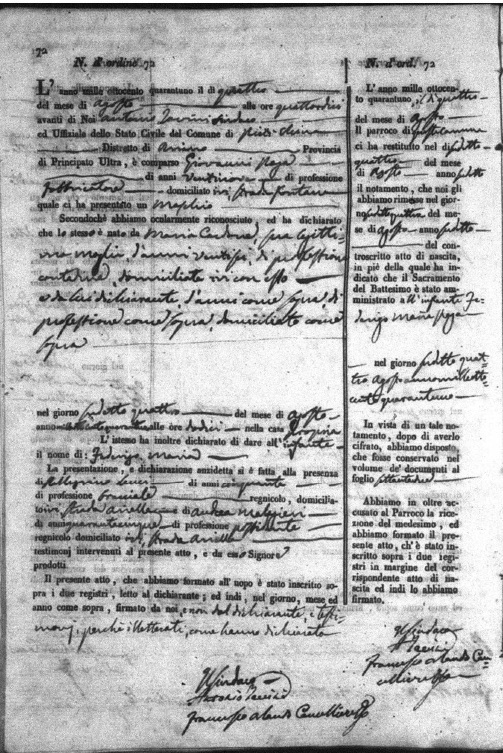 72
N. d'ordine 72
L' anno mille ottocento quarantuno il dì quattro
del mese di Agosto alle ore quattordici
avanti di Noi Antonio Sindaco
ed Uffiziale dello Stato Civile del Comune di
Distretto di Ariano Provincia
di Principato Ultra, è comparso Giovanni
di anni ventinove di professione
domiciliato ivi strada
quale ci ha presentato un Maschio
Secondochè abbiamo ocularmente riconosciuto, ed ha dichiarato
che lo stesso è nato da Maria Cardone, sua legitti-
ma moglie, d'anni ventisei, di professione
contadina, domiciliata ivi con esso
e da lui dichiarante, d'anni come sopra, di
professione come sopra domiciliato come
sopra
nel giorno sudetto quattro del mese di Agosto
anno alle ore dodici nella casa propria
L'istesso ha inoltre dichiarato di dare all' infante
il nome di: Federigo Maria
La presentazione, e dichiarazione anzidetta si è fatta, alla presenza
di Pellegrino di anni cinquanta
di professione bracciale regnicolo, domicilia-
to ivi strada e di Andrea
di anni quarantacinque di professione possidente
regnicolo domiciliato ivi, strada
testimonj intervenuti al presente atto, e da esso Signore
prodotti.
Il presente atto, che abbiamo formato all' uopo è stato inscritto so-
pra i due registri, letto al dichiarante; ed indi, nel giorno, mese ed
anno come sopra, firmato da noi, e non dal dichiarante, e testi-
monj, perchè illetterati, come hanno dichiarato
Il Sindaco
Antonio
Francesco
N. d'ord. 72
L' anno mille ottocen-
to quarantuno, il dì quattro
del mese di Agosto
Il parroco di
ci ha restituito nel dì sudetto
quattro del mese
di Agosto anno sudetto
il notamento, che noi gli
abbiamo rimesso nel gior-
no sudetto quattro del me-
se di Agosto anno sudetto
del con-
troscritto atto di nascita,
in piè della quale ha in-
dicato che il Sacramento
del Battesimo è stato am-
ministrato a ll' infante Fe-
derigo Maria
nel giorno sudetto quat-
tro Agosto anno mille otto-
cento quarantuno
In vista di un tale no-
tamento, dopo di averlo
cifrato, abbiamo disposto,
che fosse conservato nel
volume de' documenti al
foglio settantadue
Abbiamo in oltre ac-
cusato al Parroco la rice-
zione del medesimo, ed
abbiamo formato il pre-
sente atto, ch'è stato in-
scritto sopra i due regi-
stri in margine del cor-
rispondente atto di na-
scita ed indi lo abbiamo
firmato.
Il Sindaco
Francesco